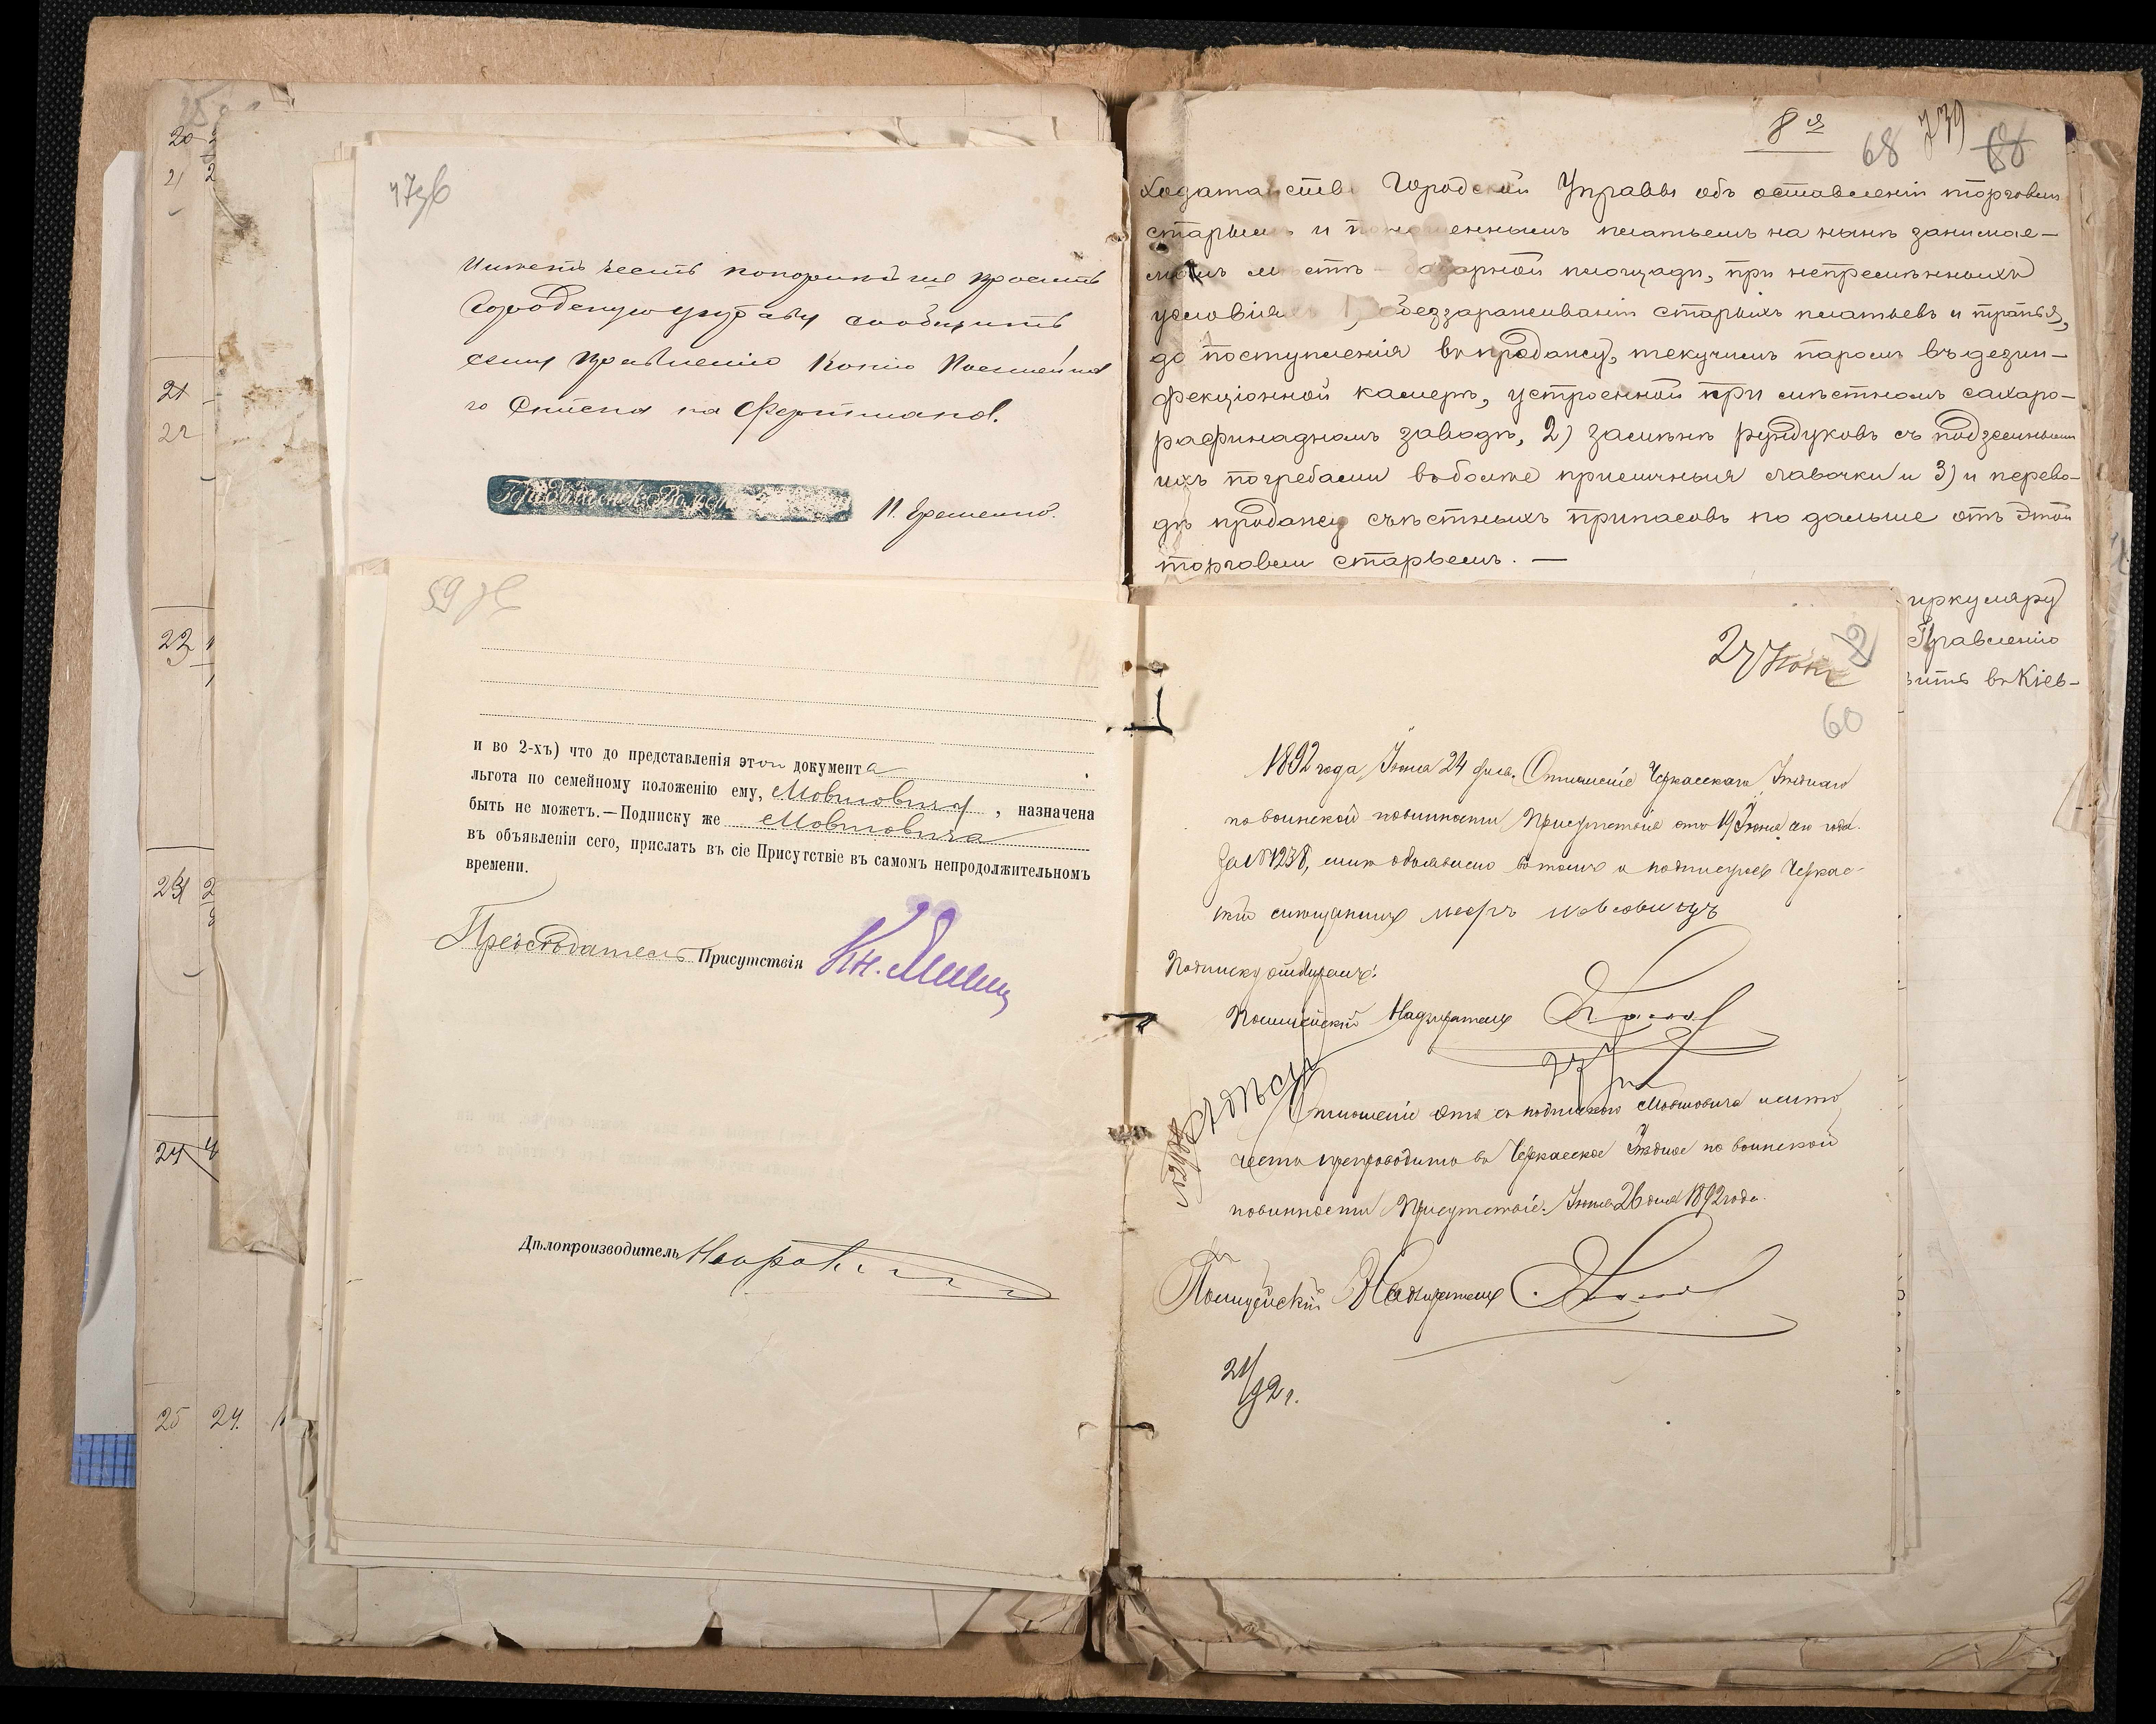 20
21 2
21
22
22
23 2
24 4
25 24.
47об
Имѣетъ честь покорнѣйше просить
Городскую управу сообщить
сему Правленію копію Посемейна
го Списка на Фертмановъ.
П. Ерешенко.
8я
68 739 68
Ходатайство Городской Управы объ оставленіи торговли
старьемъ и поношеннымъ платьемъ на нынѣ занимае-
момъ мѣстѣ – базарной площади, при непремѣнныхъ
условіяхъ 1) обеззараживаніи старыхъ платьевъ и тряпья,
до поступленія въ продажу, текучимъ паромъ въ дезин-
фекціонной камерѣ, устроенной при мѣстномъ сахаро-
рафинадномъ заводѣ, 2) замѣнѣ рундуковъ съ подземными
ихъ погребами въ болѣе приличныя лавочки и 3) и перево-
дѣ продажу съѣстныхъ припасовъ по дальше отъ этой
торговли старьемъ. —
иркуляру
Правленію
вить въ Кіев-
59 об
и во 2-хъ) что до представленія этои документа
льгота по семейному положенію ему, Мовшовичу, назначена
быть не можетъ.—Подписку же Мовшовича
въ объявленіи сего, прислать въ сіе Присутствіе въ самомъ непродолжительномъ
времени.
Предсѣдатель Присутствія Кн.
Дѣлопроизводитель
27 Іюн
60
1892 года Іюня 24 дня. Отношеніе Черкасскаго Уѣзднаго
по воинской повинности Присутствія отъ 19 Іюня сего года.
за № 1238, мнѣ объявлено въ томъ и подписуюсь Черкас-
скій мещанинъ мееръ мовшовичъ
Подписку отбиралъ:
Полицейскій Надзиратель
Отношеніе это съ подпискою Мовшовича имѣю
честь препроводить въ Черкасское Уѣздное по воинской
повинности Присутствіе. Іюня 26 дня 1892 года.
Полицейскій Надзиратель